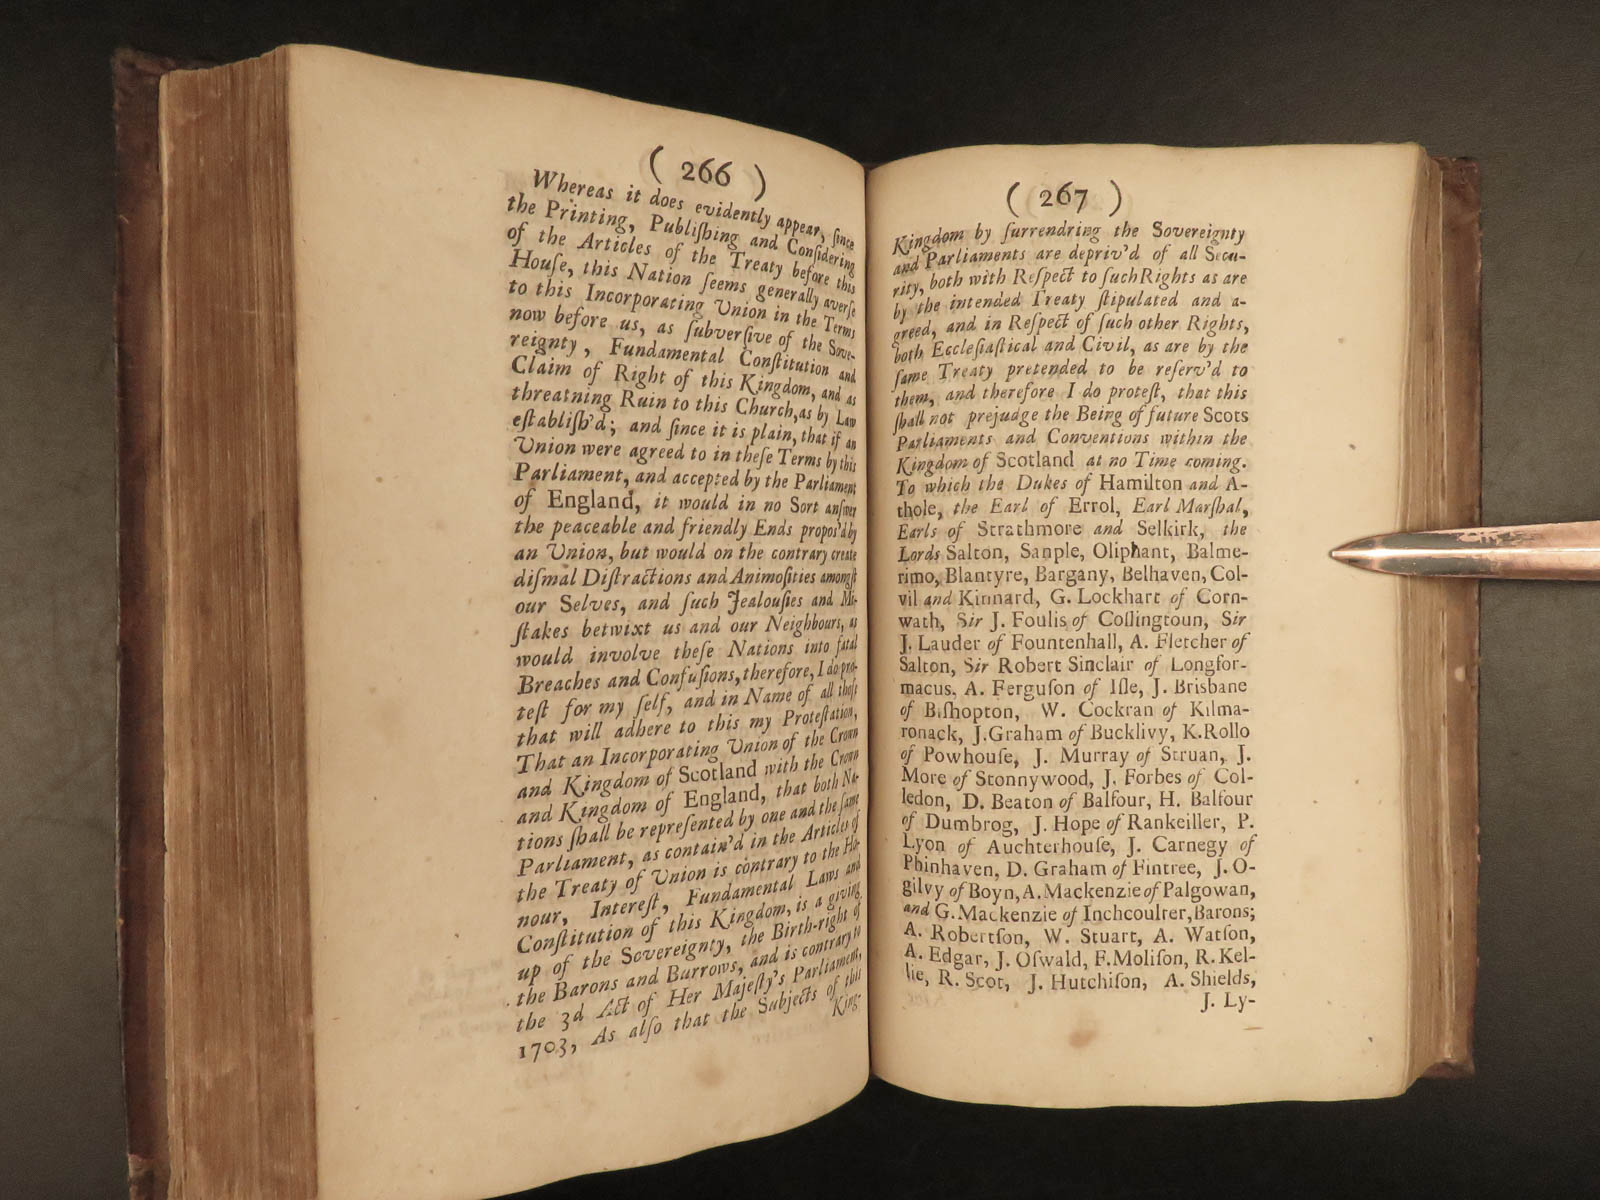 ( 266 )
Whereas it does evidently appear, ſince
the Printing, Publiſhing and Conſidering
of the Articles of the Treaty before this
Houſe, this Nation ſeems generally averſe
to this Incorporating Union in the Terms
now before us, as ſubverſive of the Sove-
reignty, Fundamental Conſtitution and
Claim of Right of this Kingdom, and as
threatning Ruin to this Church, as by Law
eſtabliſh'd; and ſince it is plain, that if an
Union were agreed to in theſe Terms by this
Parliament, and accepted by the Parliament
of England, it would in no Sort anſwer
the peaceable and friendly Ends propos'd by
an Union, but would on the contrary create
diſmal Diſtractions and Animoſities amongſt
our Selves, and ſuch Jealouſies and Mi-
ſtakes betwixt us and our Neighbours, as
would involve theſe Nations into fatal
Breaches and Confuſions, therefore, I do pro-
teſt for my ſelf, and in Name of all thoſe
that will adhere to this my Proteſtation,
That an Incorporating Union of the Crown
and Kingdom of Scotland with the Crown
and Kingdom of England, that both Na-
tions ſhall be repreſented by one and the ſame
Parliament, as contain'd in the Articles of
the Treaty of Union is contrary to the Ho-
nour, Intereſt, Fundamental Laws and
Conſtitution of this Kingdom, is a giving
up of the Sovereignty, the Birth-right of
the Barons and Burrows, and is contrary to
the 3d Act of Her Majeſty's Parliament,
1703, As alſo that the Subjects of this
King-
( 267 )
Kingdom by ſurrendring the Sovereignty
and Parliaments are depriv'd of all Secu-
rity, both with Reſpect to ſuch Rights as are
by the intended Treaty ſtipulated and a-
greed, and in Reſpect of ſuch other Rights,
both Eccleſiaſtical and Civil, as are by the
ſame Treaty pretended to be reſerv'd to
them, and therefore I do proteſt, that this
ſhall not prejudge the Being of future Scots
Parliaments and Conventions within the
Kingdom of Scotland at no Time coming.
To which the Dukes of Hamilton and A-
thole, the Earl of Errol, Earl Marſhal,
Earls of Strathmore and Selkirk, the
Lords Salton, Sanple, Oliphant, Balme-
rimo, Blantyre, Bargany, Belhaven, Col-
vil and Kinnard, G. Lockhart of Corn-
wath, Sir J. Foulis of Collingtoun, Sir
J. Lauder of Fountenhall, A. Fletcher of
Salton, Sir Robert Sinclair of Longfor-
macus, A. Ferguſon of Iſle, J. Brisbane
of Biſhopton, W. Cockran of Kilma-
ronack, J. Graham of Bucklivy, K. Rollo
of Powhouſe, J. Murray of Struan, J.
More of Stonnywood, J. Forbes of Col-
ledon, D. Beaton of Balfour, H. Balfour
of Dumbrog, J. Hope of Rankeiller, P.
Lyon of Auchterhouſe, J. Carnegy of
Phinhaven, D. Graham of Fintree, J. O-
gilvy of Boyn, A. Mackenzie of Palgowan,
and G. Mackenzie of Inchcoulrer, Barons;
A. Robertſon, W. Stuart, A. Watſon,
A. Edgar, J. Oſwald, F. Moliſon, R. Kel-
lie, R. Scot, J. Hutchiſon, A. Shields,
J. Ly-